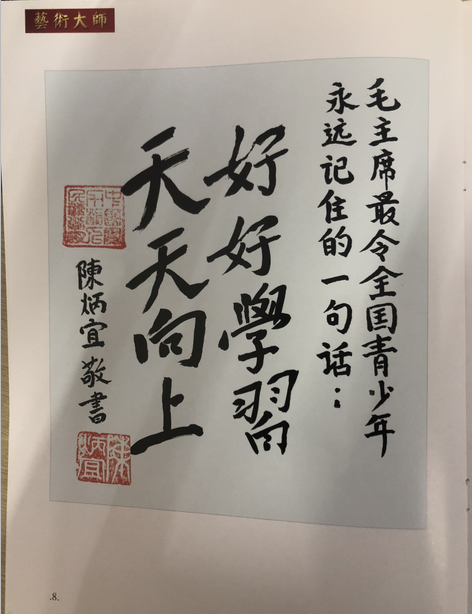 藝術大師
毛主席最令全国青少年
永远记住的一句话：
好好學習
天天向上
陳炳宜敬書
陳炳宜
.8.